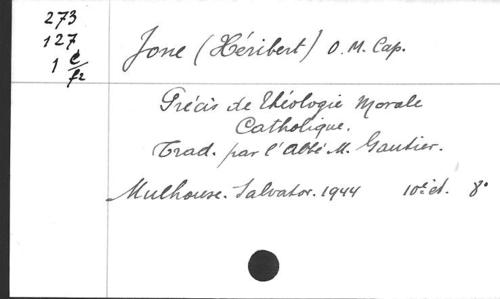 273
127
1 é
f2
Jone (Héribert) O. M. Cap.
Précis de Théologie Morale
Catholique.
Trad. par l'Abbé M. Gautier.
Mulhouse. Salvator. 1944 10e éd. 8°